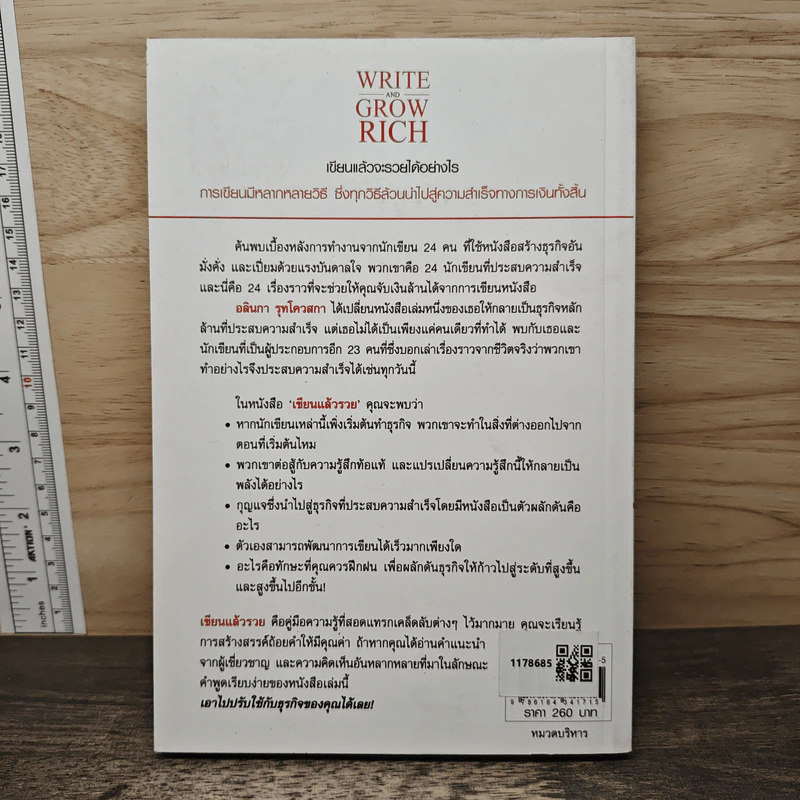 WRITE
AND
GROW
RICH
เขียนแล้วจะรวยได้อย่างไร
การเขียนมีหลากหลายวิธี ซึ่งทุกวิธีล้วนนำไปสู่ความสำเร็จทางการเงินทั้งสิ้น
ค้นพบเบื้องหลังการทำงานจากนักเขียน 24 คน ที่ใช้หนังสือสร้างธุรกิจอัน
มั่งคั่ง และเปี่ยมด้วยแรงบันดาลใจ พวกเขาคือ 24 นักเขียนที่ประสบความสำเร็จ
และนี่คือ 24 เรื่องราวที่จะช่วยให้คุณจับเงินล้านได้จากการเขียนหนังสือ
อลินกา รุทโควสกา ได้เปลี่ยนหนังสือเล่มหนึ่งของเธอให้กลายเป็นธุรกิจหลัก
ล้านที่ประสบความสำเร็จ แต่เธอไม่ได้เป็นเพียงแค่คนเดียวที่ทำได้ พบกับเธอและ
นักเขียนที่เป็นผู้ประกอบการอีก 23 คนที่ซึ่งบอกเล่าเรื่องราวจากชีวิตจริงว่าพวกเขา
ทำอย่างไรจึงประสบความสำเร็จได้เช่นทุกวันนี้
ในหนังสือ 'เขียนแล้วรวย' คุณจะพบว่า
• หากนักเขียนเหล่านี้เพิ่งเริ่มต้นทำธุรกิจ พวกเขาจะทำในสิ่งที่ต่างออกไปจาก
ตอนที่เริ่มต้นไหม
• พวกเขาต่อสู้กับความรู้สึกท้อแท้ และแปรเปลี่ยนความรู้สึกนี้ให้กลายเป็น
พลังได้อย่างไร
• กุญแจซึ่งนำไปสู่ธุรกิจที่ประสบความสำเร็จโดยมีหนังสือเป็นตัวผลักดันคือ
อะไร
• ตัวเองสามารถพัฒนาการเขียนได้เร็วมากเพียงใด
• อะไรคือทักษะที่คุณควรฝึกฝน เพื่อผลักดันธุรกิจให้ก้าวไปสู่ระดับที่สูงขึ้น
และสูงขึ้นไปอีกขั้น!
เขียนแล้วรวย คือคู่มือความรู้ที่สอดแทรกเคล็ดลับต่างๆ ไว้มากมาย คุณจะเรียนรู้
การสร้างสรรค์ถ้อยคำให้มีคุณค่า ถ้าหากคุณได้อ่านคำแนะนำ
จากผู้เชี่ยวชาญ และความคิดเห็นอันหลากหลายที่มาในลักษณะ
คำพูดเรียบง่ายของหนังสือเล่มนี้
เอาไปปรับใช้กับธุรกิจของคุณได้เลย!
1178685
-5
9 786164 341715
ราคา 260 บาท
หมวดบริหาร
inches
1
2
3
4
5
10
AKTION